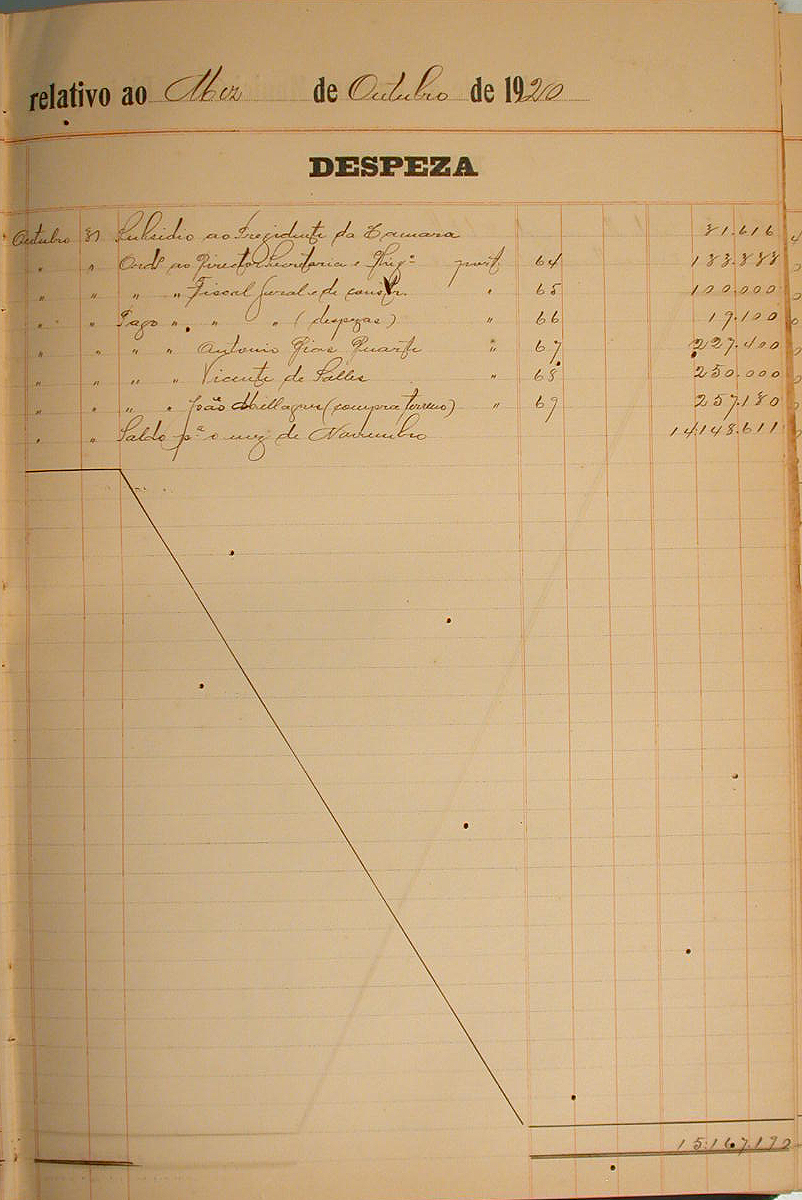 relativo ao Mez de Outubro de 1920
DESPEZA
Outubro 31 Subsidio ao Prezidente da Camara 31.616
" " Ord° ao Director Secretaria e Hyg.ª port 64 133.333
" " " " Fiscal Geral e de constr. " 65 100.000
" " Pago " " " (despezas) " 66 19.100
" " " " Antonio Dias Duarte " 67 227.400
" " " " Vicente de Salles " 68 250.000
" " " " João (compra terreno) " 69 257.180
" " Saldo pª o mez de Novembro 14.148.611
15.167.192